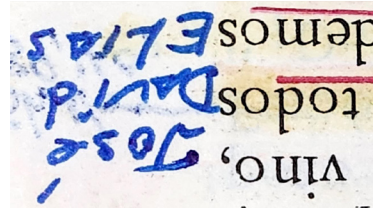 vino, José
todos David
demos Elias